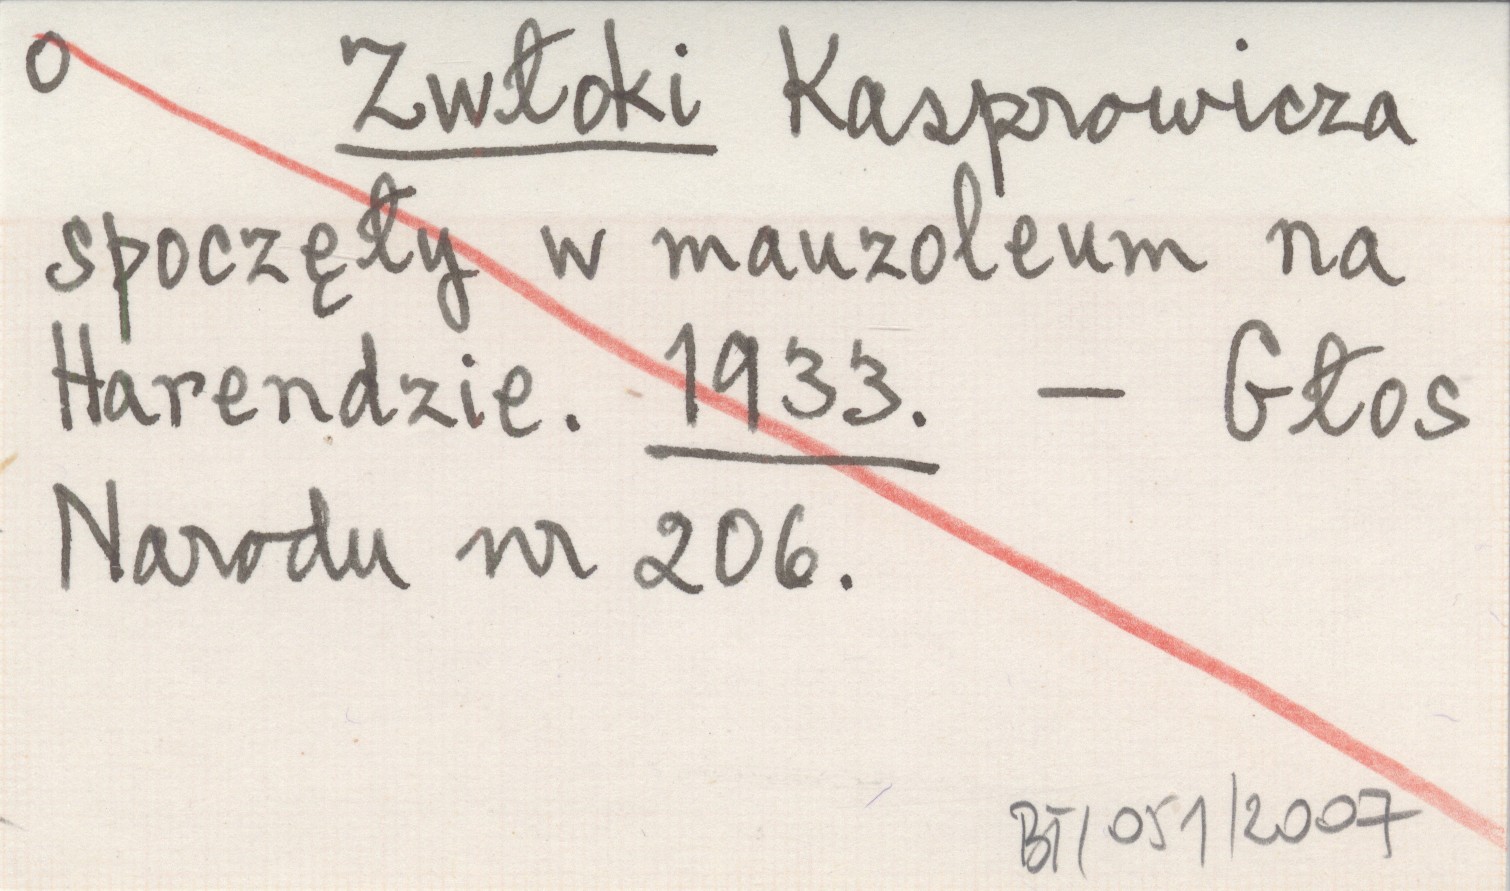 o Zwłoki Kasprowicza
spoczęły w mauzoleum na
Harendzie. 1933. — Głos
Narodu nr 206.
BŁ/051/2007